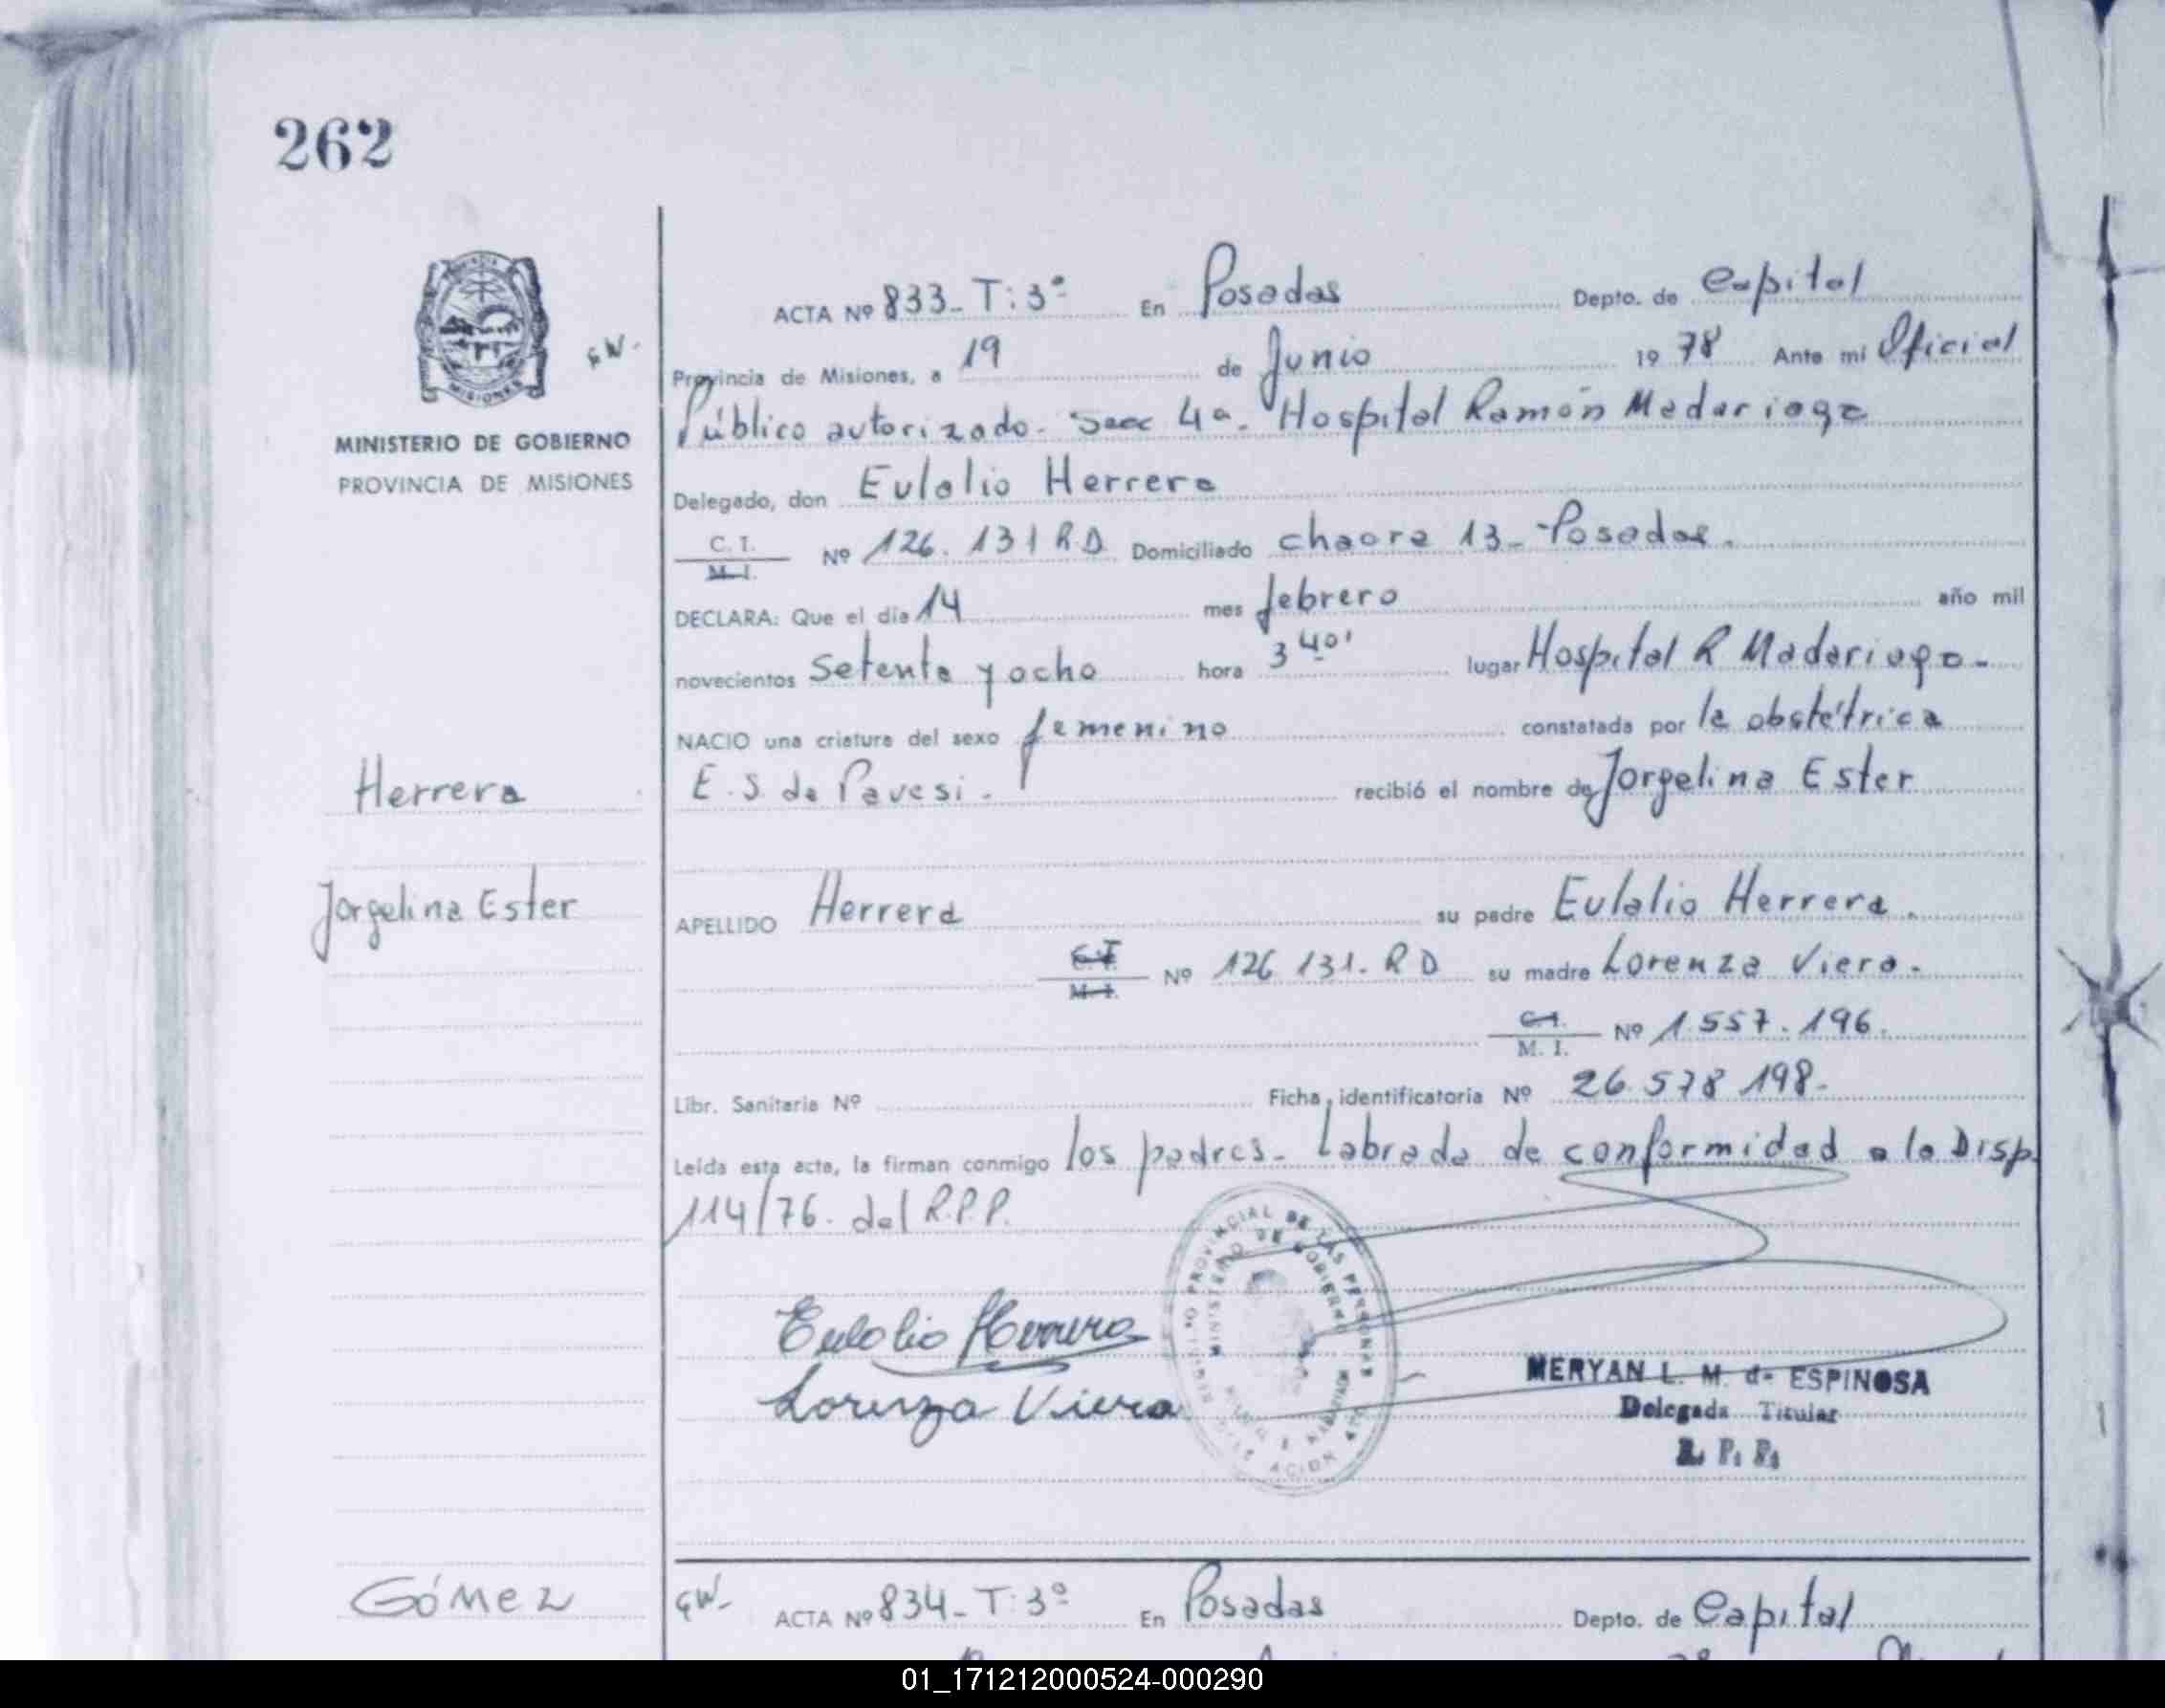 262
MINISTERIO DE GOBIERNO
PROVINCIA DE MISIONES
ACTA Nº 833_ T: 3º En Posadas Depto. de Capital
Provincia de Misiones, a 19 de Junio 19 78 Ante mi Oficial
Público autorizado. Secc 4ª. Hospital Ramón Madariaga
Delegado, don Eulalio Herrera
C. I. M. I. Nº 126.131 R.D Domiciliado chacra 13_ Posadas.
DECLARA: Que el día 14 mes febrero año mil
novecientos setenta y ocho hora 3 40' lugar Hospital R Madariaga.
NACIO una criatura del sexo femenino constatada por la obstétrica
E. S. de Pavesi. recibió el nombre de Jorgelina Ester
Herrera
Jorgelina Ester
APELLIDO Herrera su padre Eulalio Herrera.
C. I. M. I. Nº 126 131. R D su madre Lorenza Viera.
C. I. M. I. Nº 1.557.196.
Libr. Sanitaria Nº Ficha identificatoria Nº 26.578 198.
Leída esta acta, la firman conmigo los padres. Labrada de conformidad a la Disp.
114/76. del R.P.P.
Eulalio Herrera
Lorenza Viera
MERYAN L. M. de ESPINOSA
Delegada Titular
R. P. P.
Gómez
ACTA Nº 834_ T: 3º En Posadas Depto. de Capital
01_171212000524-000290